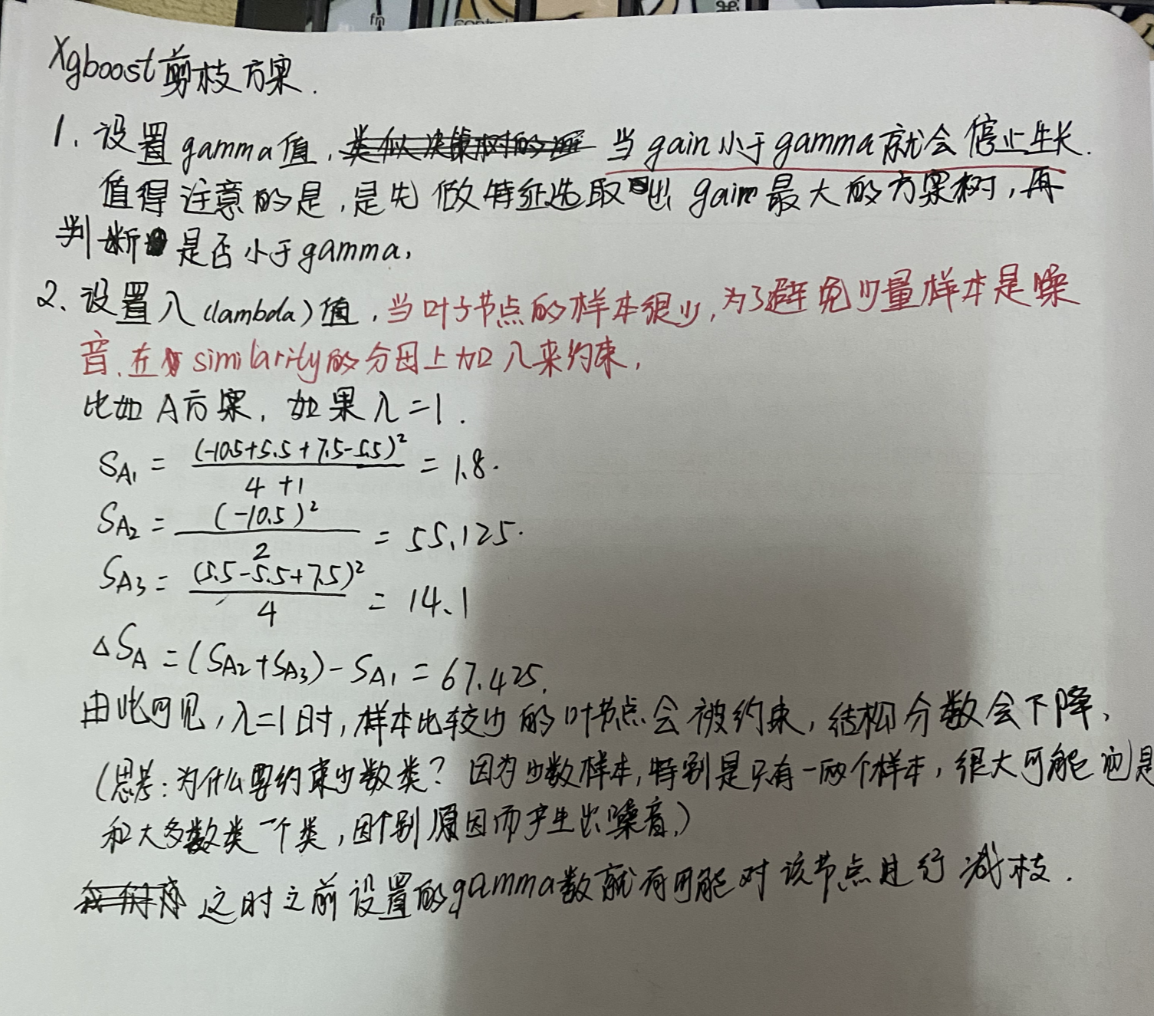 fn
control
Xgboost剪枝方案.
1. 设置gamma值, 当gain小于gamma就会停止生长.
值得注意的是,是先做特征选取出gain最大的方案树,再
判断是否小于gamma,
2、设置入(lambda)值,当叶子节点的样本很少,为了避免少量样本是噪
音.在similarity的分母上加入来约束,
比如A方案,如果λ=1.
SA₁ = (-10.5+5.5+7.5-5.5)²/(4+1) = 1.8.
SA₂ = (-10.5)²/2 = 55.125.
SA₃ = (5.5-5.5+7.5)²/4 = 14.1
△SA = (SA₂+SA₃)-SA₁ = 67.425.
由此可见,λ=1时,样本比较少的叶节点会被约束,结构分数会下降、
(思考:为什么要约束少数类?因为少数样本,特别是只有一两个样本,很大可能也是
和大多数类一个类,因个别原因而产生出噪音.)
这时之前设置的gamma数就有可能对该节点进行减枝.